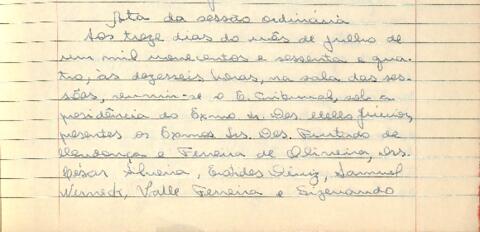 Ata da sessão ordinária
Aos treze dias do mês de julho de
um mil novecentos e sessenta e qua-
tro, às dezesseis horas, na sala das ses-
sões, reuniu-se o E. Tribunal, sob a
presidência do Exmo. Sr. Des. Mello Júnior,
presentes os Exmos. Srs. Des. Furtado de
Mendonça e Ferreira de Oliveira, Drs.
César Silveira, Eardes Diniz, Samuel
Werneck, Valle Ferreira e Sizenando